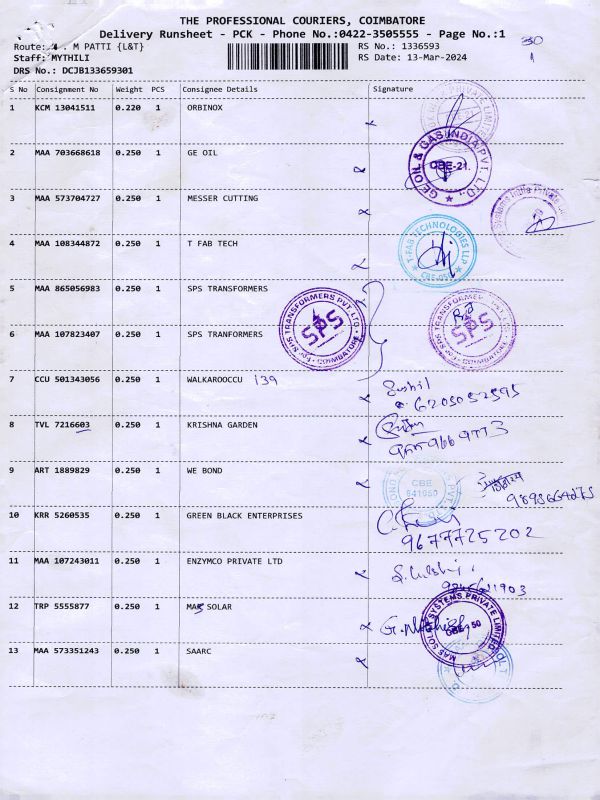 THE PROFESSIONAL COURIERS, COIMBATORE
Delivery Runsheet - PCK - Phone No.:0422-3505555 - Page No.:1
Route: M PATTI {L&T} RS No.: 1336593
Staff: MYTHILI RS Date: 13-Mar-2024
DRS No.: DCJB133659301
S No Consignment No Weight PCS Consignee Details Signature
1 KCM 13041511 0.220 1 ORBINOX
2 MAA 703668618 0.250 1 GE OIL
GE OIL & GAS INDIA PVT. LTD.,
CBE-21.
3 MAA 573704727 0.250 1 MESSER CUTTING
4 MAA 108344872 0.250 1 T FAB TECH
T-FAB TECHNOLOGIES LLP
5 MAA 865056983 0.250 1 SPS TRANSFORMERS
For SPS TRANSFORMERS PVT. LTD. COIMBATORE
SPS
SPS
6 MAA 107823407 0.250 1 SPS TRANFORMERS
7 CCU 501343056 0.250 1 WALKAROOCCU 139
Sushil
6205052595
8 TVL 7216603 0.250 1 KRISHNA GARDEN
9 ART 1889829 0.250 1 WE BOND
CBE
641050
10 KRR 5260535 0.250 1 GREEN BLACK ENTERPRISES
9677725202
11 MAA 107243011 0.250 1 ENZYMCO PRIVATE LTD
12 TRP 5555877 0.250 1 MAS SOLAR
MAS SOLAR SYSTEMS PRIVATE LIMITED
13 MAA 573351243 0.250 1 SAARC